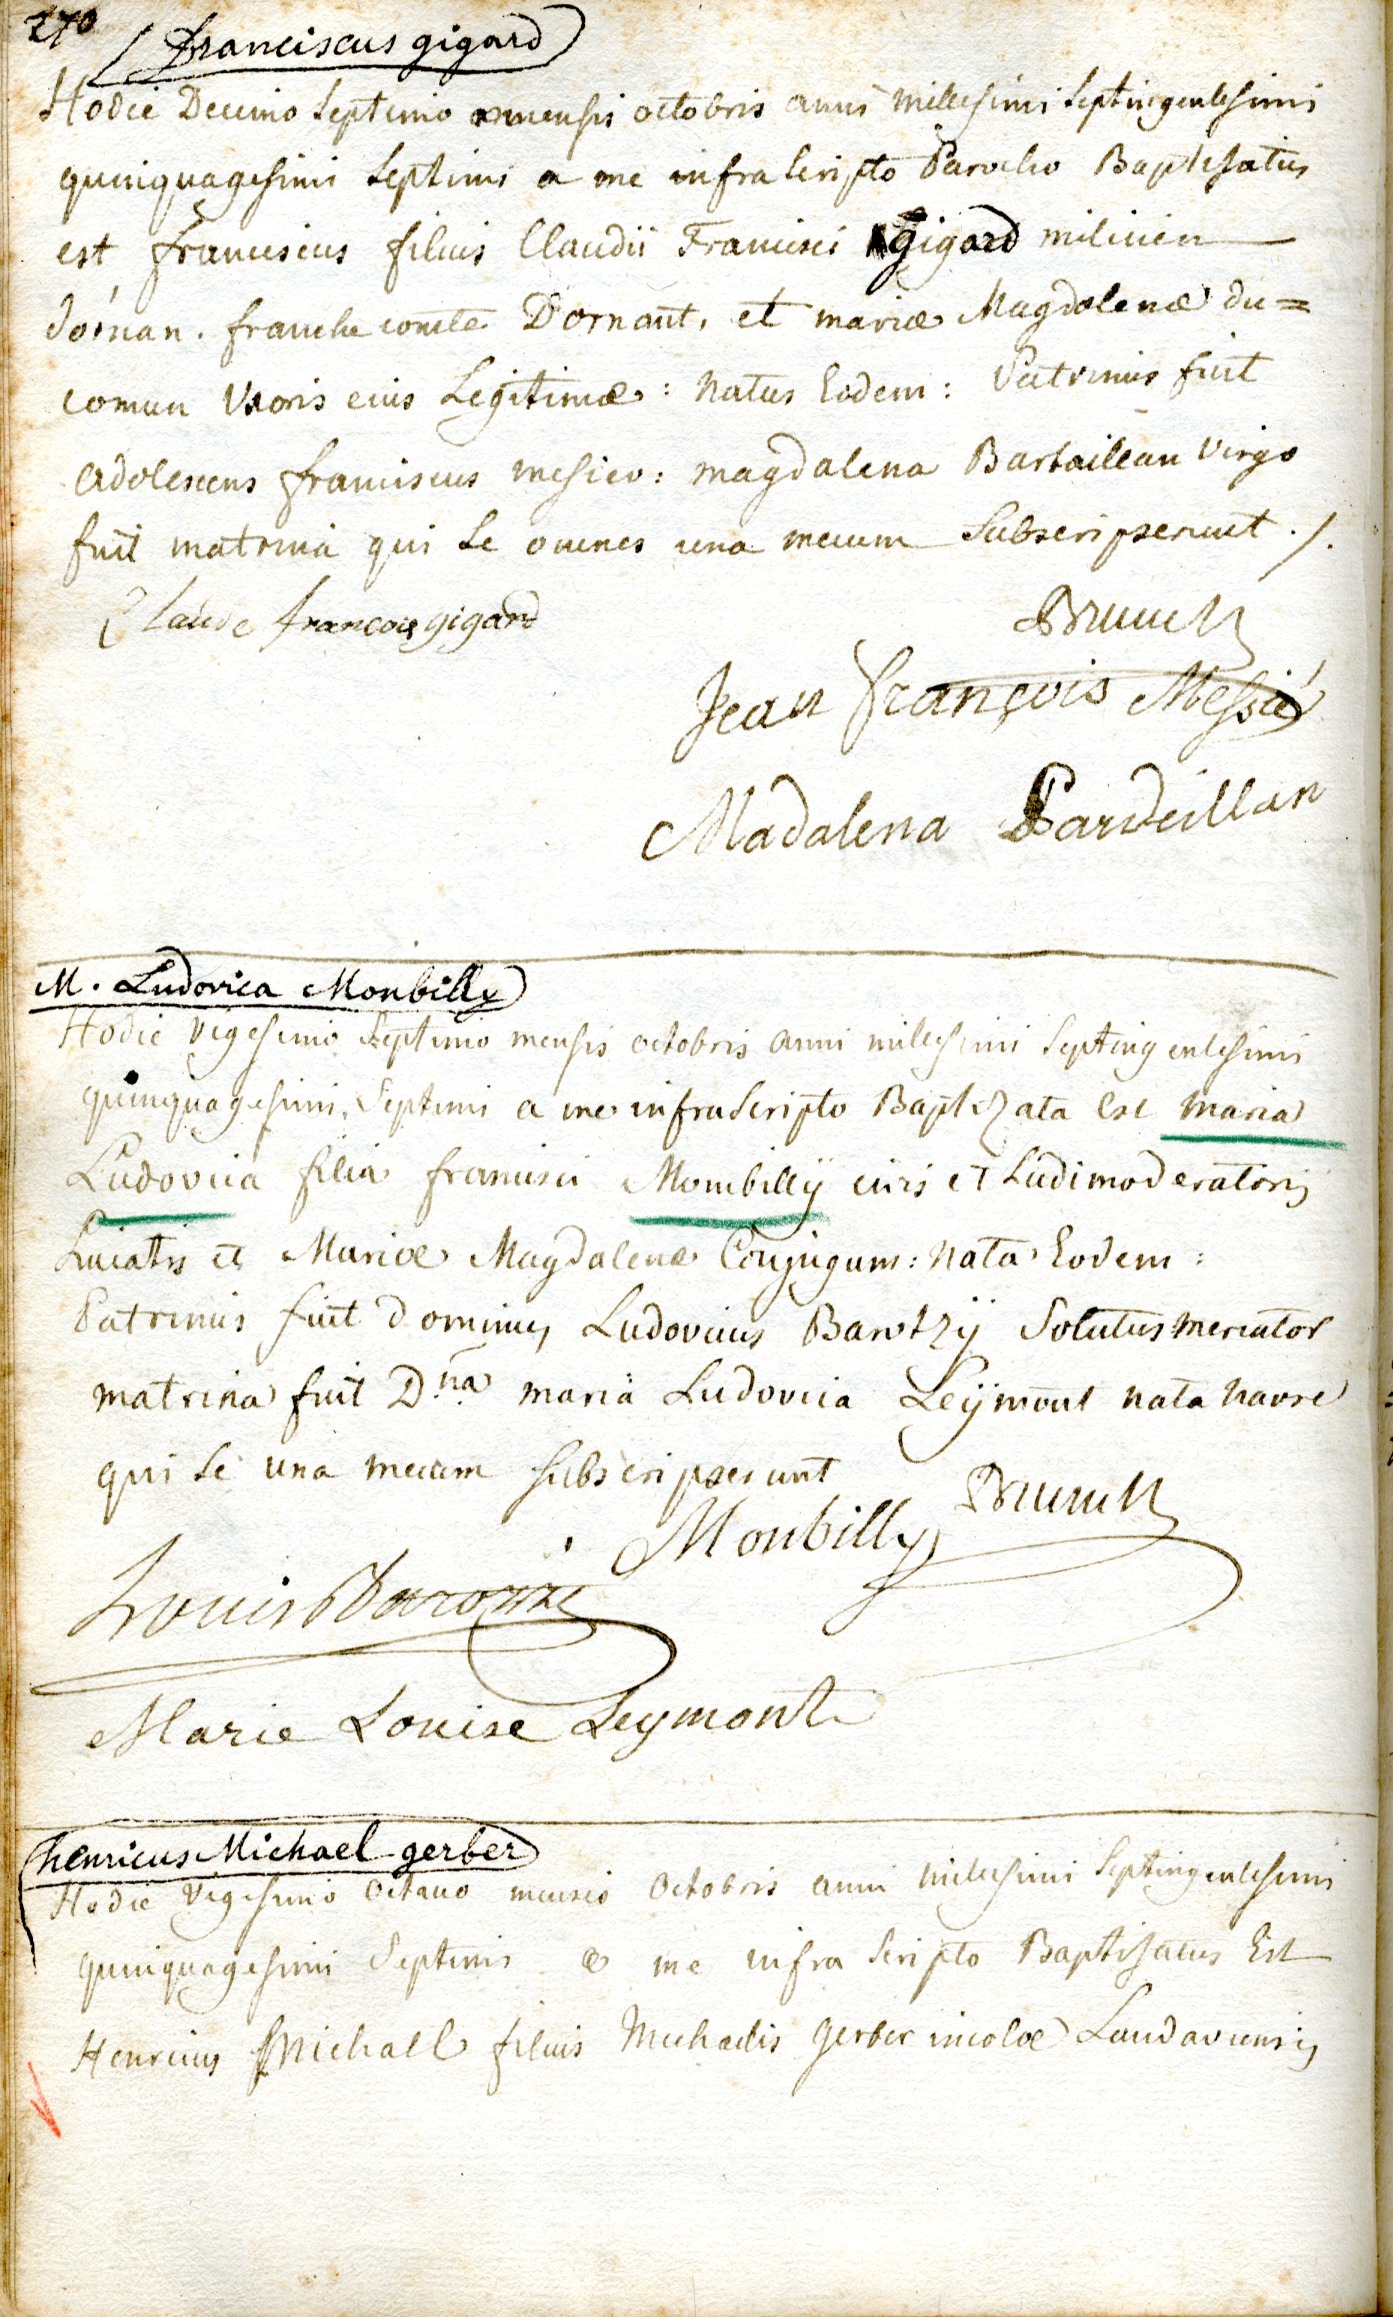 270
Franciscus gigard
Hodie Decimo Septimo mensis octobris anni millesimi Septingentesimi
quinquagesimi Septimi a me infra scripto Parocho Baptisatus
est franciscus filius Claudii Francisci gigard milicien
doman. franche comte Dornant, et mariæ Magdalenæ du=
comun Uxoris eius Legitimæ: Natus Eodem: Patrinus fuit
Adolescens franciscus mesieo: magdalena Bartaillan Virgo
fuit matrina qui se omnes una mecum Subscripserunt ./.
Claude francois gigard
Brunck
Jean françois Messié
Madalena Pardeillan
M. Ludovica Monbilly
Hodie Vigesimo Septimo mensis octobris anni millesimi Septingentesimi
quinquagesimi Septimi a me infra Scripto Baptizata Est maria
Ludovica filia francisci Mombillÿ civis et Ludimoderatoris
Lucatis et Mariæ Magdalenæ Conjugum: Nata Eodem:
Patrinus fuit Dominus Ludovicus Barotzÿ Solutus mercator
matrina fuit D.na maria Ludovica Leÿmont nata
qui se una mecum subscripserunt
Brunck
Monbilly
Louis Barozzi
Marie Louise Leymont
henricus Michael gerber
Hodie Vigesimo Octavo mensis Octobris anni millesimi Septingentesimi
quinquagesimi Septimi a me infra Scripto Baptisatus Est
Henricus Michaell filius Michaelis Gerber incolæ Landaviensis